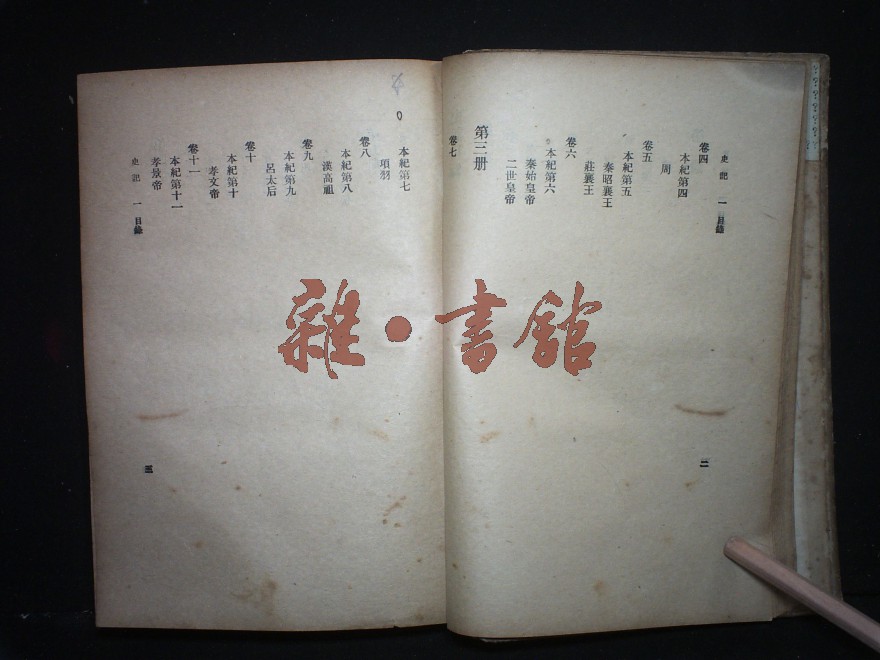 史記 一 目錄
卷四
本紀第四
周
卷五
本紀第五
秦昭襄王
莊襄王
卷六
本紀第六
秦始皇帝
二世皇帝
第三册
卷七
二
本紀第七
項羽
卷八
本紀第八
漢高祖
卷九
本紀第九
呂太后
卷十
本紀第十
孝文帝
卷十一
本紀第十一
孝景帝
史記 一 目錄
三
雜·書館